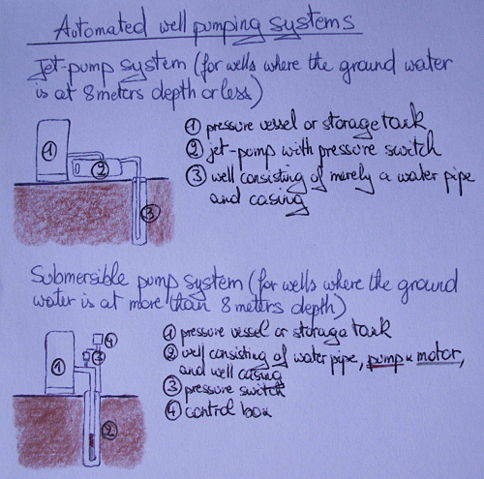 Automated well pumping systems
Jet-pump system (for wells where the ground water
is at 8 meters depth or less)
① pressure vessel or storage tank
② jet-pump with pressure switch
③ well consisting of merely a water pipe
and casing
① ② ③
Submersible pump system (for wells where the ground
water is at more than 8 meters depth)
① pressure vessel or storage tank
② well consisting of water pipe, pump & motor,
and well casing
③ pressure switch
④ control box
④
① ③
②